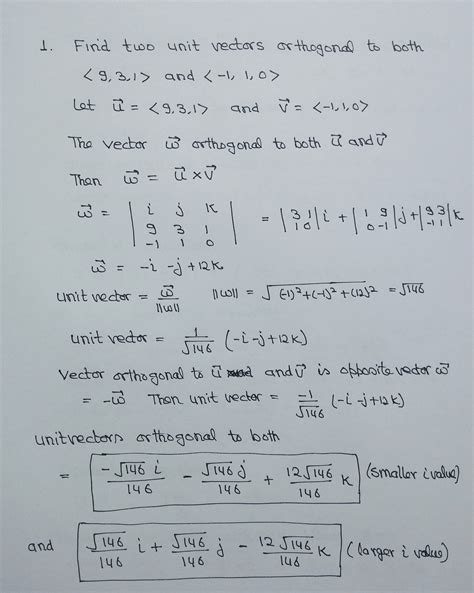 1. Find two unit vectors orthogonal to both
<9,3,1> and <-1, 1, 0>
Let u⃗ = <9,3,1> and v⃗ = <-1,1,0>
The vector w⃗ orthogonal to both u⃗ and v⃗
Then w⃗ = u⃗ x v⃗
w⃗ = | i j k ; 9 3 1 ; -1 1 0 | = |3 1 ; 1 0| i + |1 9 ; 0 -1| j + |9 3 ; -1 1| k
w⃗ = -i -j +12k
unit vector = w⃗/||w|| ||w|| = √((-1)²+(-1)²+(12)²) = √146
unit vector = 1/√146 (-i-j+12k)
Vector orthogonal to u⃗ and v⃗ is opposite vector w⃗
= -w⃗ Then unit vector = -1/√146 (-i -j+12k)
unitvectors orthogonal to both
= -√146 i/146 - √146 j/146 + 12√146/146 k (smaller i value)
and √146/146 i + √146/146 j - 12√146/146 k (larger i value)